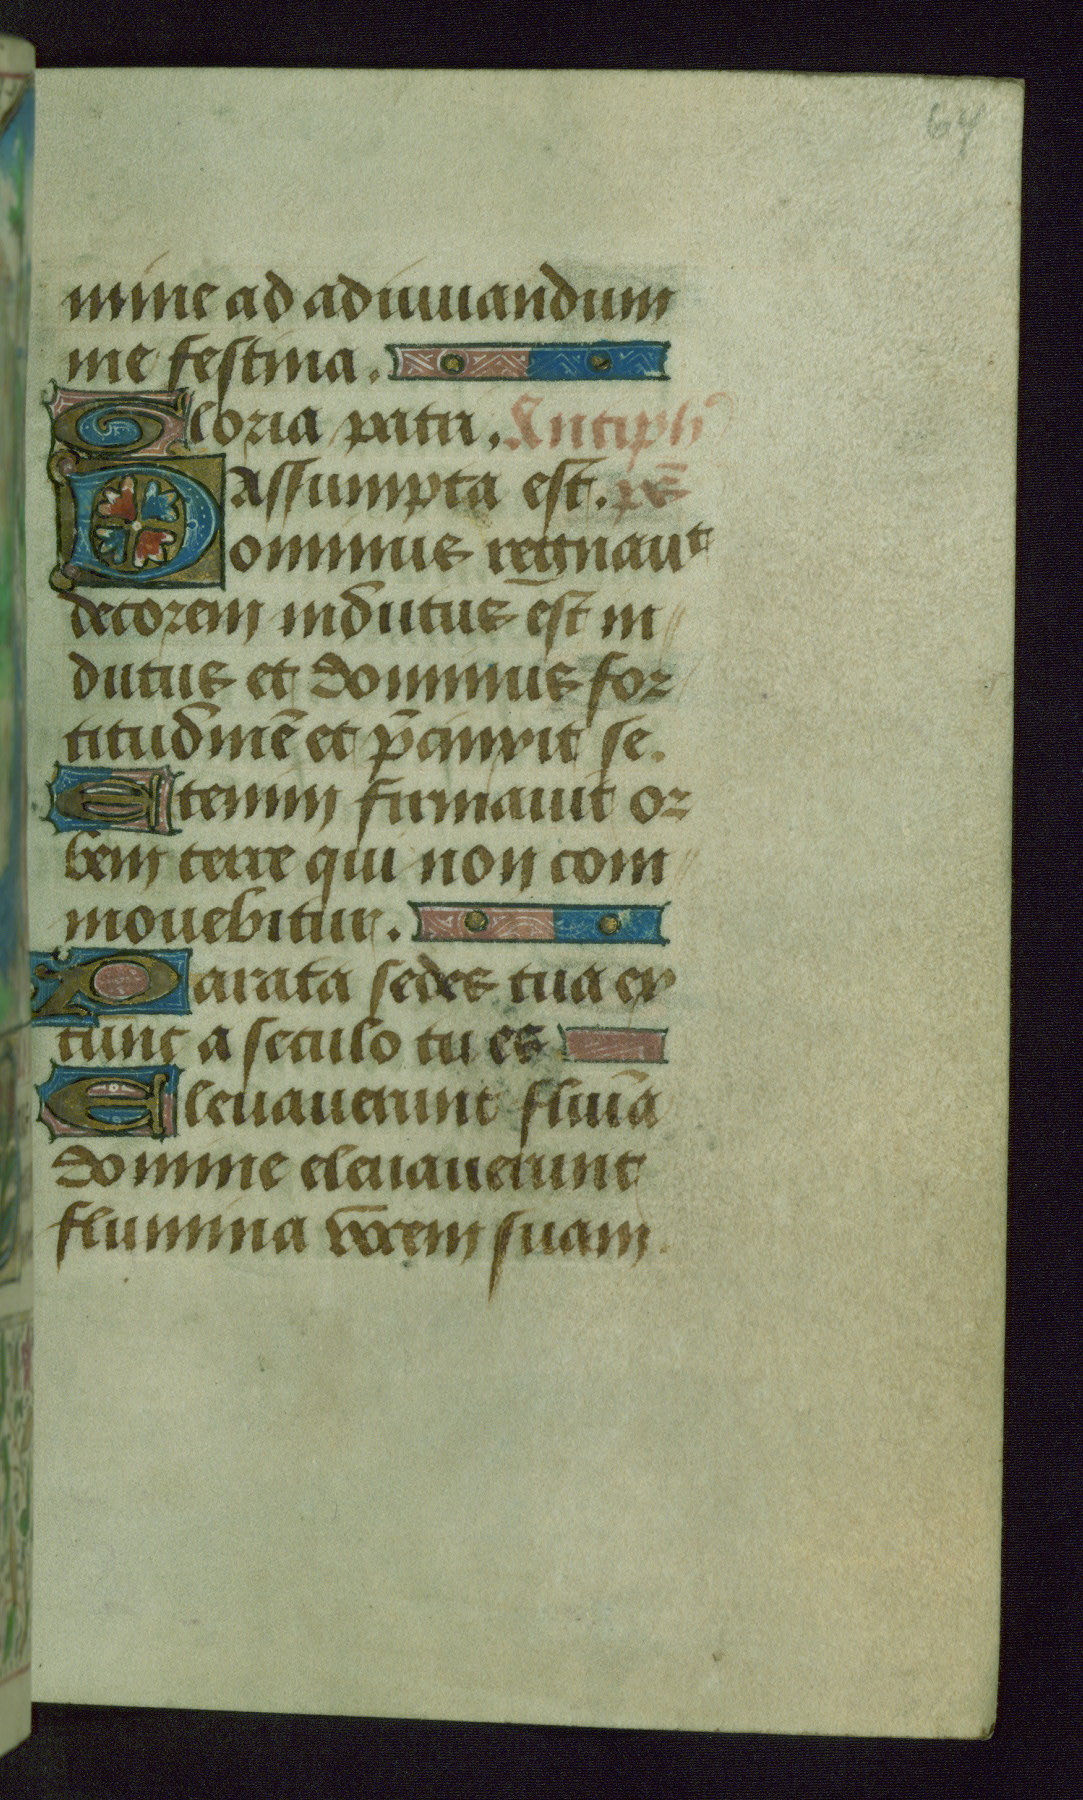 64
mine ad adiuuandum
me festina.
Gloria patri. Antiph
assumpta est. ps
Dominus regnauit
decorem indutus est in
dutus et dominus for
titudinē et p̄cinxit se.
Etenim firmauit or
bem terre qui non com
mouebitur.
Parata sedes tua ex
tunc a seculo tu es
Eleuauerunt flumīa
domine eleuauerunt
flumina vocem suam.